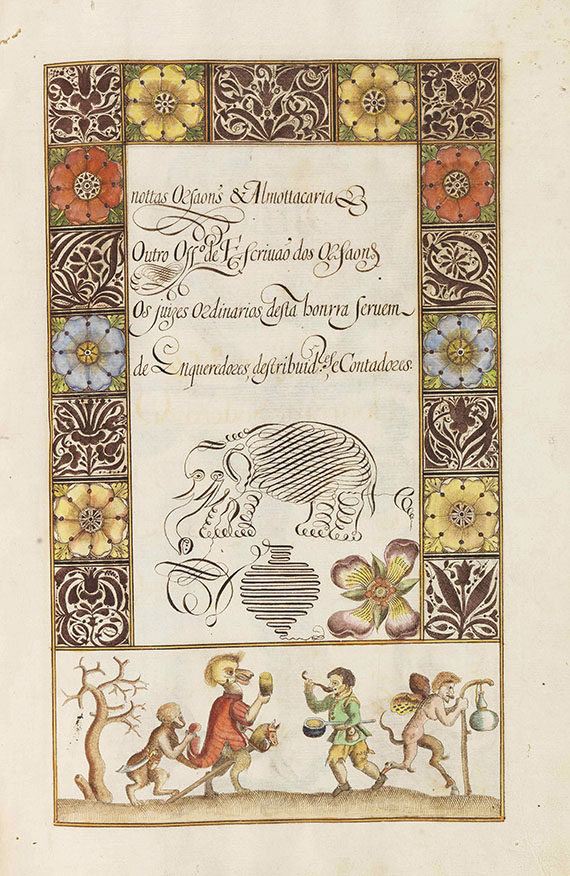 nottas Orfaons & Almottacaria
Outro Off.º de Escriuaõ dos Orfaons
Os juizes Ordinarios desta honrra seruem
de Enqueredores, destribuid.res, e Contadores.